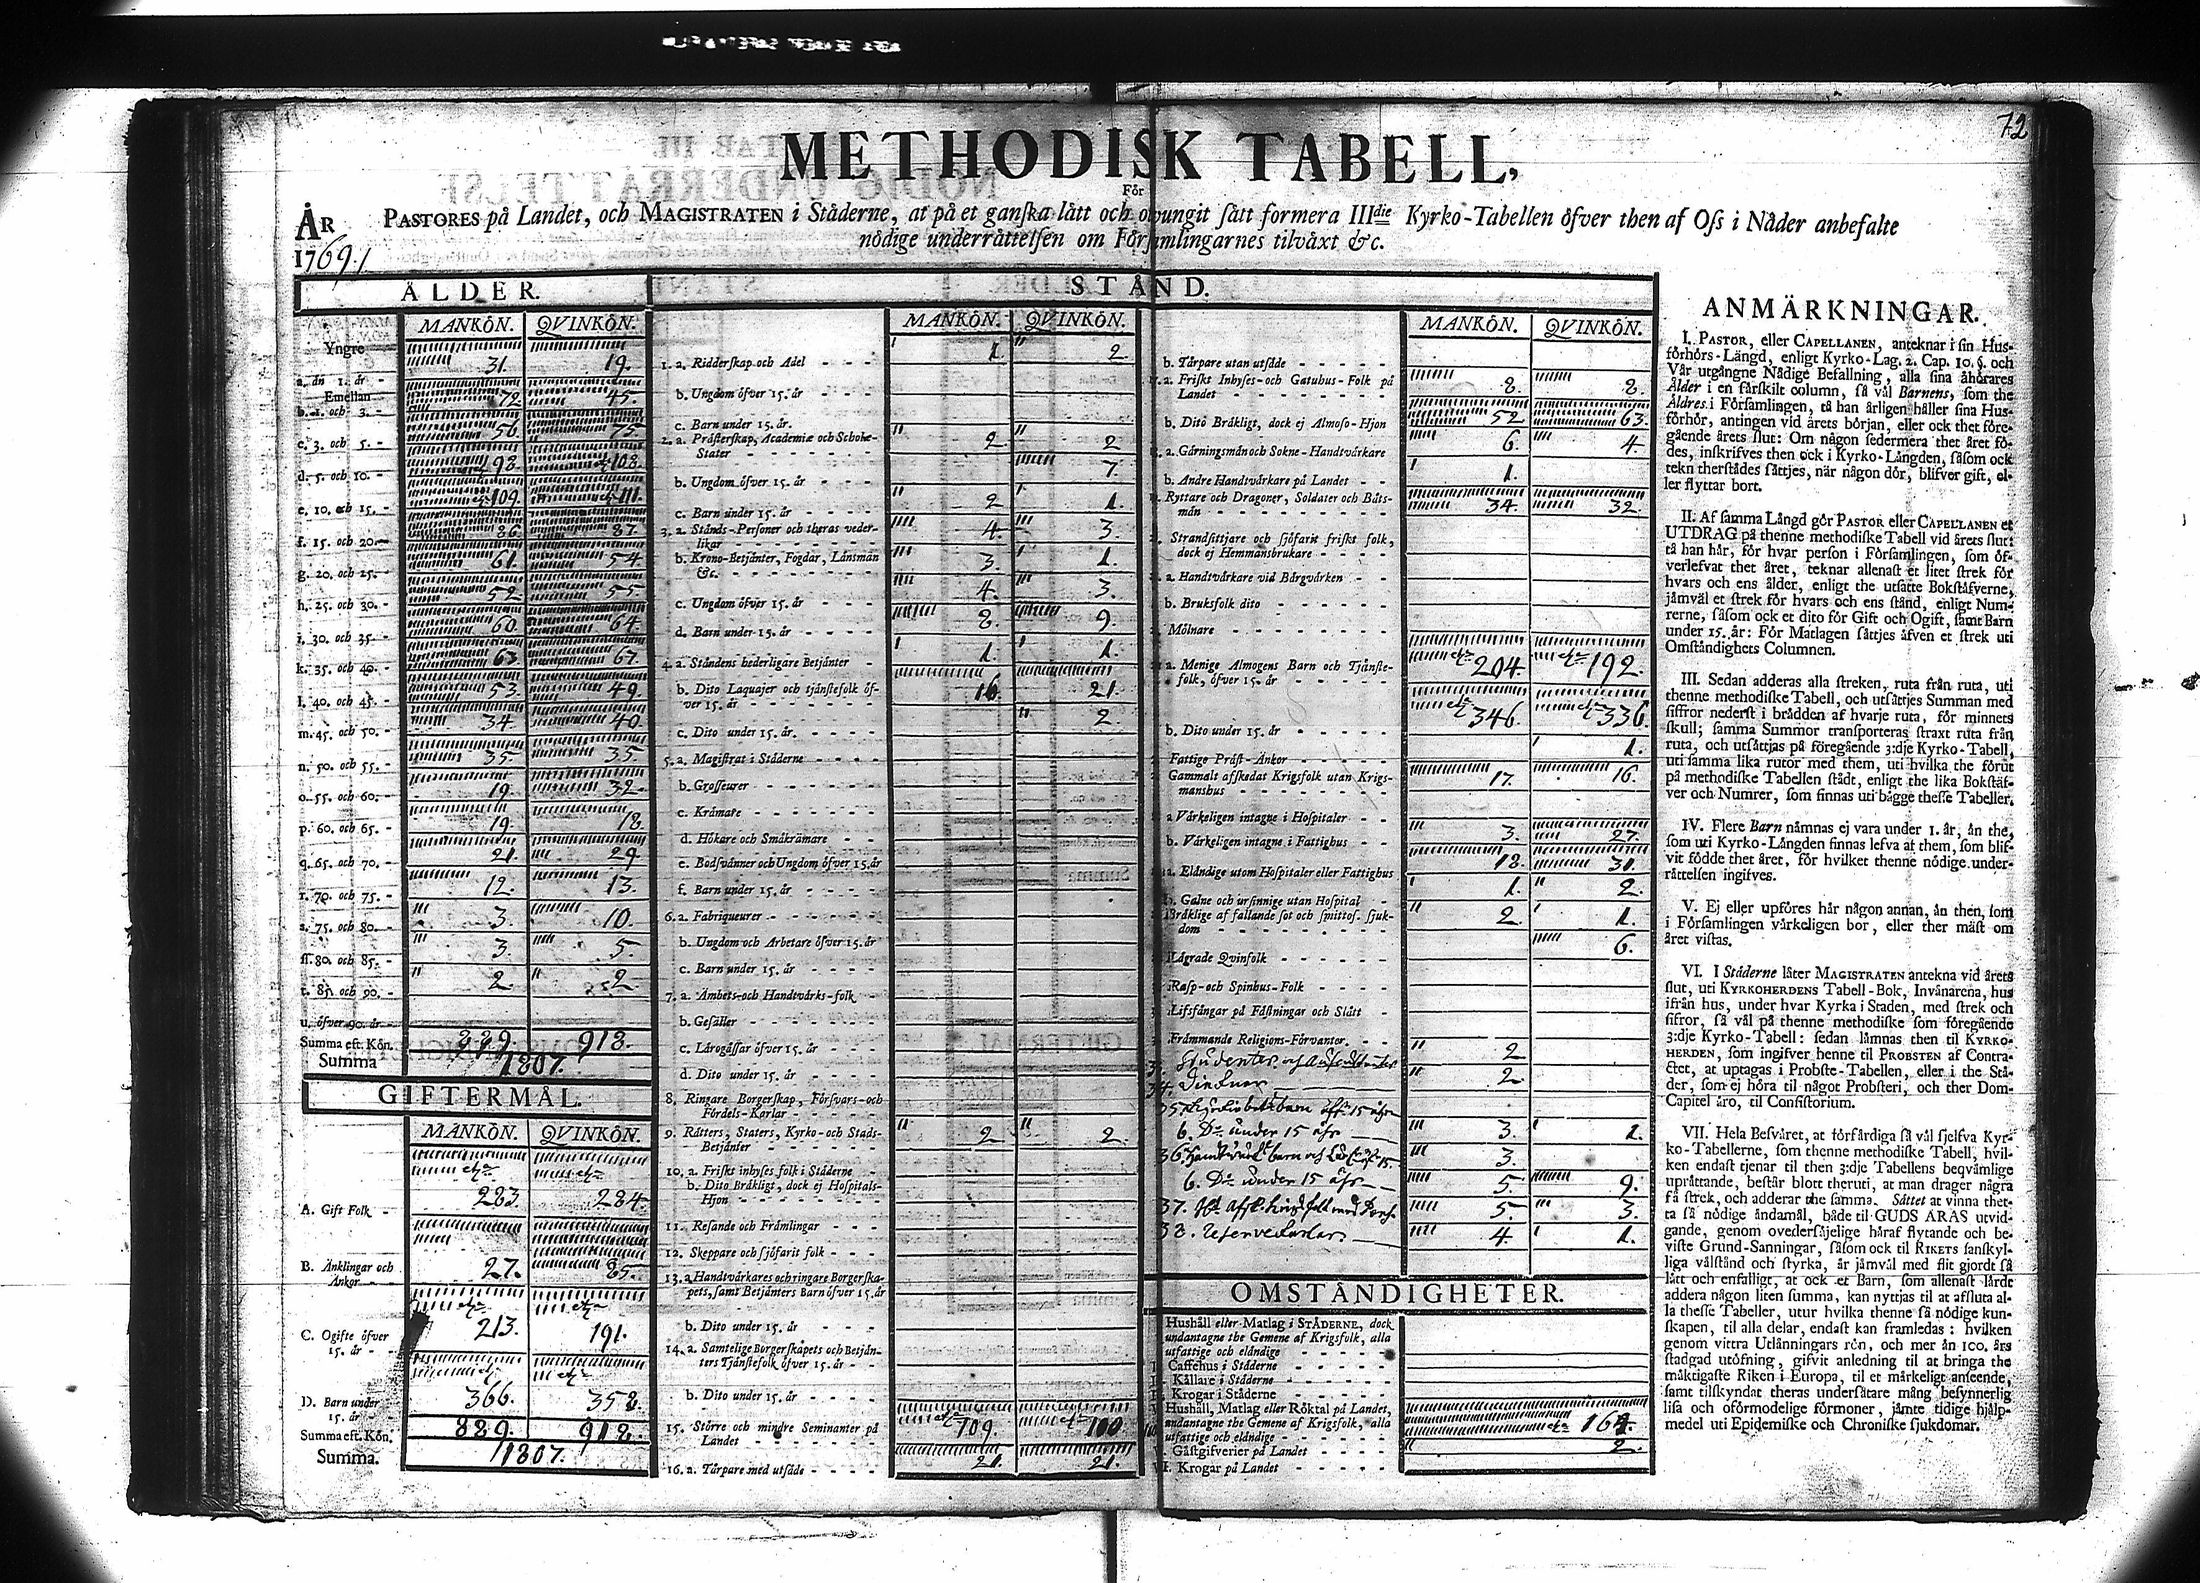 72
METHODISK TABELL,
För
ÅR
PASTORES på Landet, och MAGISTRATEN i Städerne, at på et ganska lått och otvungit sätt formera IIIdie Kyrko-Tabellen öfver then af Oss i Nåder anbefalte
nödige underrättelsen om Församlingarnes tilväxt &c.
1769./
ÅLDER.
MANKÖN. QVINKÖN.
Yngre
a. än 1. år - 31. 19.
Emellan
b. 1. och 3. - 72. 45.
c. 3. och 5. - 56. 75.
d. 5. och 10. - 98. 108.
e. 10. och 15. - 109. 111.
f. 15. och 20. - 86. 87.
g. 20. och 25. - 61. 54.
h. 25. och 30. - 52. 55.
i. 30. och 35. - 60. 64.
k. 35. och 40. - 63. 67.
l. 40. och 45. - 53. 49.
m. 45. och 50. - 34. 40.
n. 50. och 55. - 35. 35.
o. 55. och 60. - 19. 32.
p. 60. och 65. - 19. 18.
q. 65. och 70. - 21. 29.
r. 70. och 75. - 12. 13.
s. 75. och 80. - 3. 10.
ss. 80. och 85. - 3. 5.
t. 85. och 90. - 2. 2.
u. öfver 90. år -
Summa eft. Kön. 889. 918.
Summa 1807.
GIFTERMÅL.
MANKÖN. QVINKÖN.
A. Gift Folk - 283. 284.
B. Änklingar och
Änkor - 27. 85.
C. Ogifte öfver
15. år - 213. 191.
D. Barn under
15. år - 366. 358.
Summa eft. Kön. 889. 918.
Summa. 1807.
STÅND.
MANKÖN. QVINKÖN.
1. a. Ridderskap och Adel - 1. 2.
b. Ungdom öfver 15. år -
c. Barn under 15. år.
2. a. Prästerskap, Academiæ och Schole-
Stater - 2 2
b. Ungdom öfver 15. år - 7.
c. Barn under 15. år - 2 1.
3. a. Stånds-Personer och theras veder-
likar - 4. 3.
b. Krono-Betjänter, Fogdar, Länsmän
&c. - 3. 1.
c. Ungdom öfver 15. år - 4. 3.
d. Barn under 15. år - 8. 9.
4. a. Ståndens hederligare Betjänter - 1. 1.
b. Dito Laquajer och tjänstefolk öf-
ver 15. år - 16. 21.
c. Dito under 15. år. - 2.
5. a. Magistrat i Städerne -
b. Grosseurer -
c. Krämare -
d. Hökare och Småkrämare -
e. Bodsvänner och Ungdom öfver 15. år
f. Barn under 15. år -
6. a. Fabriqueurer -
b. Ungdom och Arbetare öfver 15. år
c. Barn under 15. år -
7. a. Ämbets- och Handtvärks-folk -
b. Gesäller -
c. Lärogåssar öfver 15. år -
d. Dito under 15. år -
8. Ringare Borgerskap, Försvars- och
Fördels-Karlar -
9. Rätters, Staters, Kyrko- och Stads-
Betjänter - 2 2.
10. a. Friskt inhyses folk i Städerne -
b. Dito Bräkligt, dock ej Hospitals-
Hjon -
11. Resande och Främlingar -
12. Skeppare och sjöfarit folk -
13. a. Handtvärkares och ringare Borgerska-
pets, samt Betjänters Barn öfver 15. år
b. Dito under 15. år -
14. a. Samtelige Borgerskapets och Betjän-
ters Tjänstefolk öfver 15. år -
b. Dito under 15. år -
15. Större och mindre Seminanter på
Landet - 109. 100.
16. a. Tärpare med utsäde - 21. 21.
MANKÖN. QVINKÖN.
b. Tärpare utan utsäde -
a. Friskt Inhyses- och Gatuhus-Folk på
Landet - 8. 8.
b. Dito Bräkligt, dock ej Almoso-Hjon 52. 63.
a. Gärningsmän och Sokne-Handtvärkare 6. 4.
b. Andre Handtvärkare på Landet - 1.
Ryttare och Dragoner, Soldater och Båts-
män - 34. 32.
Strandsittjare och sjöfarit friskt folk,
dock ej Hemmansbrukare -
a. Handtvärkare vid Bärgvärken -
b. Bruksfolk dito -
Mölnare -
a. Menige Almogens Barn och Tjänste-
folk, öfver 15. år - 204. 192.
b. Dito under 15. år - 346. 336.
Fattige Präst-Änkor - 1.
Gammalt afskedat Krigsfolk utan Krigs-
manshus - 17. 16.
a. Värkeligen intagne i Hospitaler -
b. Värkeligen intagne i Fattighus - 3. 27.
a. Eländige utom Hospitaler eller Fattighus 18. 31.
b. Galne och ursinnige utan Hospital - 1. 2.
Bräklige af fallande sot och smittos. sjuk-
dom - 2. 1.
Lägrade Qvinfolk - 6.
Rasp- och Spinhus-Folk -
Lifsfångar på Fästningar och Slått -
Främmande Religions-Förvanter. -
Studenter och 2
34. 2
35. barn öfr 15 åhr
6. Do under 15 åhr 3. 1.
36. Handtvärk barn och 15. 3.
6. Do under 15 åhr 5. 9.
37. afsk. krigsfolk med Pens. 5. 3.
38. Reservekarlar 4. 1.
OMSTÄNDIGHETER.
Hushåll eller Matlag i STÄDERNE, dock
undantagne the Gemene af Krigsfolk, alla
utfattige och eländige -
Caffehus i Städerne -
Källare i Städerne -
Krogar i Städerne -
Hushåll, Matlag eller Röktal på Landet,
undantagne the Gemene af Krigsfolk, alla
utfattige och eländige - 164.
Gästgifverier på Landet - 2.
VI. Krogar på Landet -
ANMÄRKNINGAR.
I. PASTOR, eller CAPELLANEN, anteknar i sin Hus-
förhörs-Längd, enligt Kyrko-Lag. 2. Cap. 10. §. och
Vår utgångne Nådige Befallning, alla sina åhörares
Ålder i en särskilt column, så väl Barnens, som the
Äldres i Församlingen, tå han årligen håller sina Hus-
förhör, antingen vid årets början, eller ock thet före-
gående årets slut: Om någon sedermera thet året fö-
des, inskrifves then ock i Kyrko-Längden, såsom ock
tekn therstädes sättjes, när någon dör, blifver gift, el-
ler flyttar bort.
II. Af samma Längd gör PASTOR eller CAPELLANEN et
UTDRAG på thenne methodiske Tabell vid årets slut:
tå han här, för hvar person i Församlingen, som öf-
verlefvat thet året, teknar allenast et litet strek för
hvars och ens ålder, enligt the utsatte Bokstäfverne,
jämväl et strek för hvars och ens stånd, enligt Num-
rerne, såsom ock et dito för Gift och Ogift, samt Barn
under 15. år: För Matlagen sättjes äfven et strek uti
Omständighets Columnen.
III. Sedan adderas alla streken, ruta från ruta, uti
thenne methodiske Tabell, och utsättjes Summan med
siffror nederst i brädden af hvarje ruta, för minnets
skull; samma Summor transporteras straxt ruta från
ruta, och utsättjas på föregående 3:dje Kyrko-Tabell,
uti samma lika rutor med them, uti hvilka the förut
på methodiske Tabellen stådt, enligt the lika Bokstäf-
ver och Numrer, som finnas uti bägge thesse Tabeller.
IV. Flere Barn nämnas ej vara under 1. år, än the,
som uti Kyrko-Längden finnas lefva af them, som blif-
vit födde thet året, för hvilket thenne nödige under-
rättelsen ingifves.
V. Ej eller upföres här någon annan, än then, som
i Församlingen värkeligen bor, eller ther mäst om
året vistas.
VI. I Städerne låter MAGISTRATEN antekna vid årets
slut, uti KYRKOHERDENS Tabell-Bok, Invånarena, hus
ifrån hus, under hvar Kyrka i Staden, med strek och
sifror, så väl på thenne methodiske som föregående
3:dje Kyrko-Tabell: sedan lämnas then til KYRKO-
HERDEN, som ingifver henne til PROBSTEN af Contra-
ctet, at uptagas i Probste-Tabellen, eller i the Stä-
der, som ej höra til något Probsteri, och ther Dom-
Capitel äro, til Consistorium.
VII. Hela Besväret, at förfärdiga så väl sjelfva Kyr-
ko-Tabellerne, som thenne methodiske Tabell, hvil-
ken endast tjenar til then 3:dje Tabellens beqvämlige
uprättande, består blott theruti, at man drager några
få strek, och adderar the samma. Sättet at vinna thet-
ta så nödige ändamål, både til GUDS ÄRAS utvid-
gande, genom ovedersäjelige häraf flytande och be-
viste Grund-Sanningar, såsom ock til RIKETS sanskyl-
liga välstånd och styrka, är jämväl med flit gjordt så
lått och enfalligt, at ock et Barn, som allenast lärdt
addera någon liten summa, kan nyttjas til at afsluta al-
la thesse Tabeller, utur hvilka thenne så nödige kun-
skapen, til alla delar, endast kan framledas: hvilken
genom vittra Utlänningars rön, och mer än 100. års
stadgad utöfning, gifvit anledning til at bringa the
mäktigaste Riken i Europa, til et märkeligt anseende,
samt tilskyndat theras undersåtare mång besynnerlig
lisa och oförmodelige förmoner, jämte tidige hjälp-
medel uti Epidemiske och Chroniske sjukdomar.